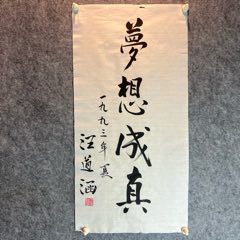 夢想成真
一九九三年夏
汪道涵